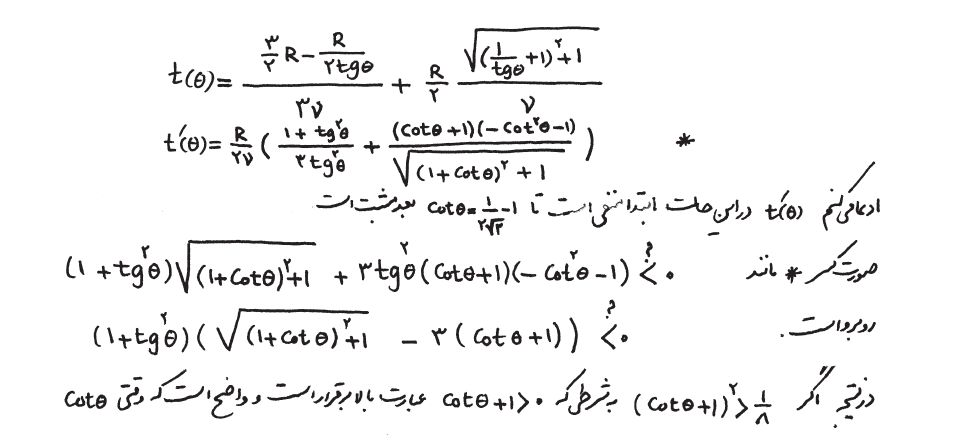 t(θ) = (۳/۲ R − R/(۲tgθ)) / ۳v + R/۲ √((۱/tgθ + ۱)^۲ + ۱) / v
t′(θ) = R/۲v ( (۱ + tg^۲θ)/(۳tg^۲θ) + (Cotθ + ۱)(−Cot^۲θ − ۱)/√((۱ + Cotθ)^۲ + ۱) ) *
ادعا می‌کنیم t′(θ) در این حالت ابتدا منفی است تا Cotθ = ۱/(۲√۲) − ۱ بعد مثبت است
صورت کسر * مانند (۱ + tg^۲θ)√((۱ + Cotθ)^۲ + ۱) + ۳tg^۲θ(Cotθ + ۱)(−Cot^۲θ − ۱) <؟ ۰
روبرو است. (۱ + tg^۲θ)(√((۱ + Cotθ)^۲ + ۱) − ۳(Cotθ + ۱)) <؟ ۰
در نتیجه اگر (Cotθ + ۱)^۲ > ۱/۸ به شرطی که Cotθ + ۱ > ۰ عبارت بالا برقرار است و واضح است که وقتی Cotθ